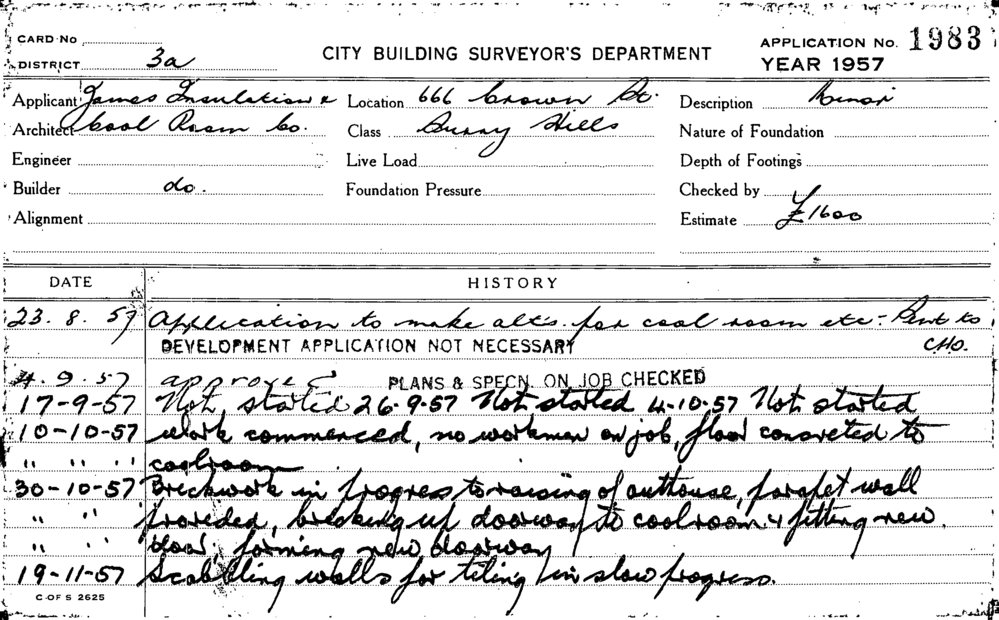 CARD No
DISTRICT 3a
CITY BUILDING SURVEYOR'S DEPARTMENT
APPLICATION No. 1983
YEAR 1957
Applicant James Insulation &
Location 666 Crown St.
Description Minor
Architect Cool Room Co.
Class Surry Hills
Nature of Foundation
Engineer
Live Load
Depth of Footings
Builder do.
Foundation Pressure
Checked by
Alignment
Estimate £1600
DATE HISTORY
23. 8. 57 Application to make alts. for cool room etc - Sent to
DEVELOPMENT APPLICATION NOT NECESSARY C.H.O.
4. 9. 57 approved PLANS & SPECN. ON JOB CHECKED
17-9-57 Not started 26.9.57 Not started 4.10.57 Not started
10-10-57 work commenced, no workmen on job, floor concreted to
" " " coolroom
30-10-57 Brickwork in progress to raising of outhouse, parapet wall
" " provided, bricking up doorway to coolroom & fitting new
" " door, forming new doorway
19-11-57 Scabbling walls for tiling in slow progress.
C OF S 2625